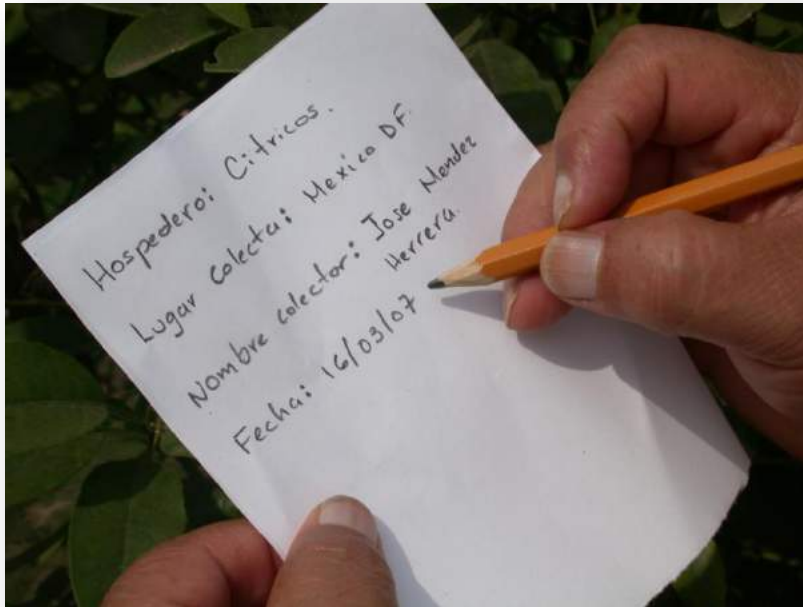 Hospedero: Citricos.
Lugar colecta: Mexico DF.
Nombre colector: Jose Mendez
Herrera.
Fecha: 16/03/07